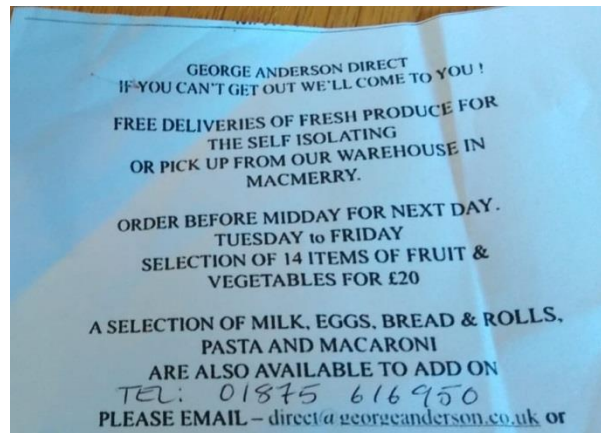 GEORGE ANDERSON DIRECT
IF YOU CAN'T GET OUT WE'LL COME TO YOU !
FREE DELIVERIES OF FRESH PRODUCE FOR
THE SELF ISOLATING
OR PICK UP FROM OUR WAREHOUSE IN
MACMERRY.
ORDER BEFORE MIDDAY FOR NEXT DAY.
TUESDAY to FRIDAY
SELECTION OF 14 ITEMS OF FRUIT &
VEGETABLES FOR £20
A SELECTION OF MILK, EGGS, BREAD & ROLLS,
PASTA AND MACARONI
ARE ALSO AVAILABLE TO ADD ON
TEL: 01875 616950
PLEASE EMAIL – direct@georgeanderson.co.uk or